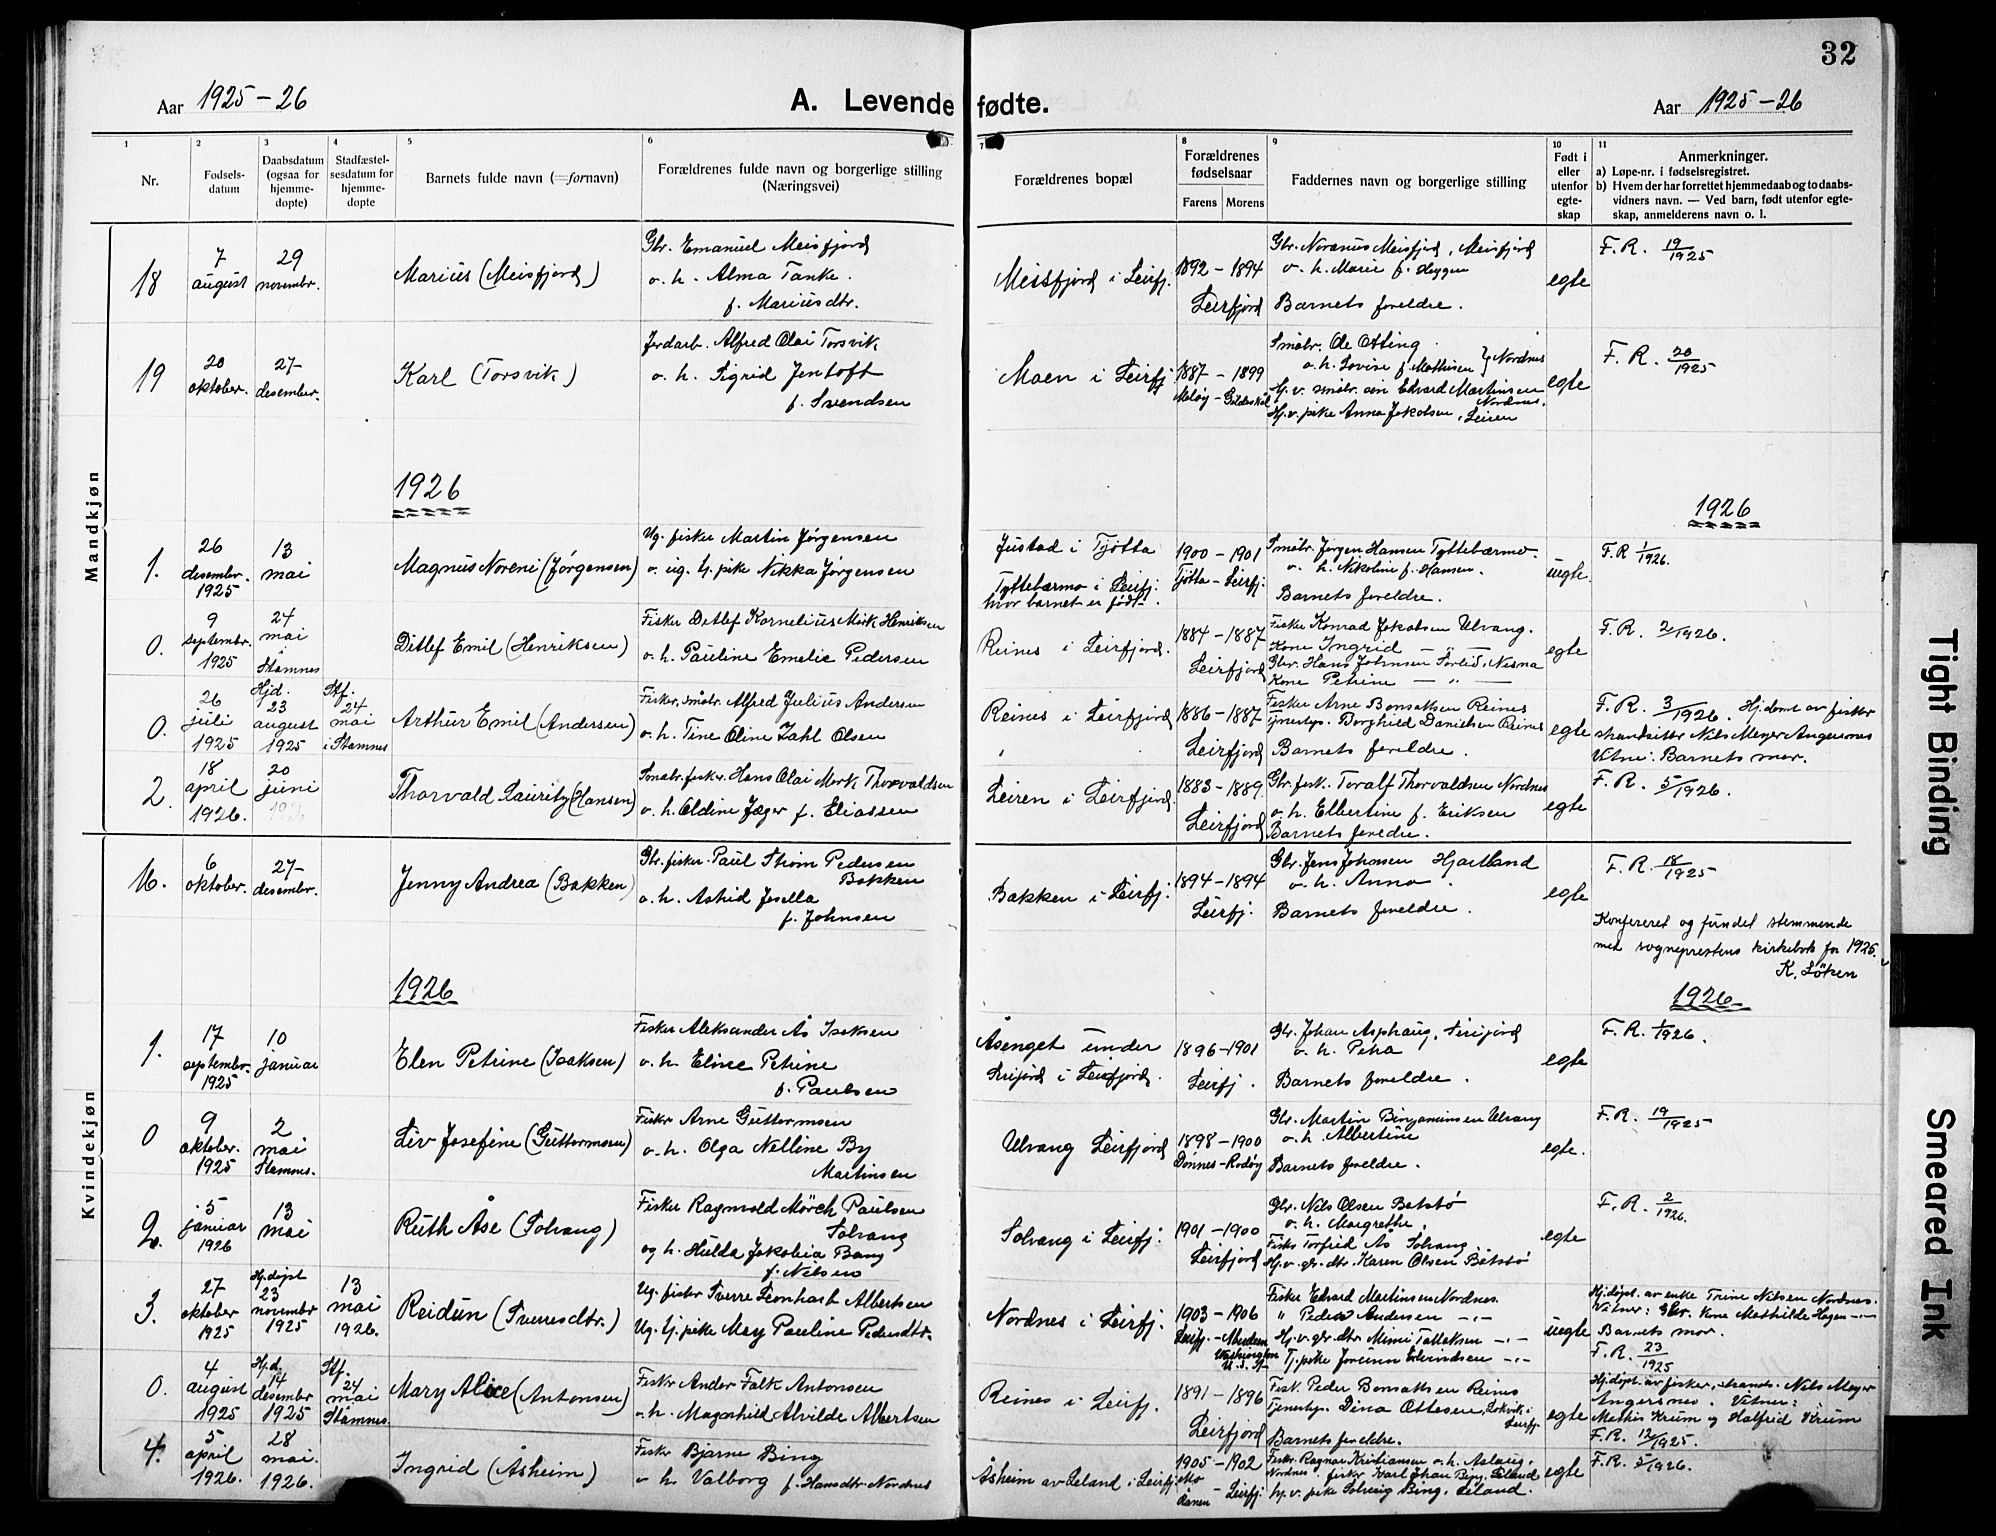 32
Aar 1925-26
A. Levende fødte.
Aar 1925-26
1
2
3
4
5
6
7
8
9
10
11
Nr.
Fødsels-
datum
Daabsdatum
(ogsaa for
hjemme-
døpte)
Stadfæstel-
sesdatum for
hjemme-
døpte
Barnets fulde navn (=fornavn)
Forældrenes fulde navn og borgerlige stilling
(Næringsvei)
Forældrenes bopæl
Forældrenes
fødselsaar
Farens
Morens
Faddernes navn og borgerlige stilling
Født i
eller
utenfor
egte-
skap
Anmerkninger.
a) Løpe-nr. i fødselsregistret.
b) Hvem der har forrettet hjemmedaab og to daabs-
vidners navn. — Ved barn, født utenfor egte-
skap, anmelderens navn o. l.
Mandkjøn
18
7
august
29
novembr.
Marius (Meisfjord)
Gbr. Emanuel Meisfjord
o. h. Alma Tanke.
f. Mariusdtr.
Meisfjord i Leirfj.
1892 - 1894
Leirfjord
Gbr. Noranus Meisfjord, Meisfjord
o. h. Marie f. Heggen
Barnets foreldre.
egte
F. R. 19/1925
19
20
oktober.
27-
desember.
Karl (Torsvik)
Jordarb. Alfred Olai Torsvik
o. h. Sigrid Jentoft
f. Svendsen
Moen i Leirfj.
1887 - 1899
Meløy - Gildeskål
Småbr. Ole Otting
o. h. Lovise f. Mathisen } Nordnes
Hj. v. småbr. søn Edvard Martinsen
Nordnes.
Hj. v. pike Anna Jakobsen, Leiren
egte
F. R. 20/1925
1926
1926
1.
26
desembr.
1925
13
mai
Magnus Noreni (Jörgensen)
Ug. fisker Martin Jörgensen
o. ug. tj. pike Nikka Jörgensen
Justad i Tjötta
Tyttebærmo i Leirfj.
hvor barnet er født.
1900 - 1901
Tjötta - Leirfj.
Småbr. Jörgen Hansen Tyttebærmo.
o. h. Nikoline f. Hansen.
Barnets foreldre.
uegte
F. R 1/1926.
0.
9
septembr.
1925
24
mai
i
Stamnes
Ditlef Emil (Henriksen)
Fisker Detlef Kornelius Mörk Henriksen
o. h. Pauline Emelie Pedersen
Reines i Leirfjord.
1884 - 1887
Leirfjord
Fisker Konrad Jakobsen Ulvang.
Kone Ingrid — " —
Gbr. Hans Johnsen Forlid, Nesna
Kone Petrine — " —
egte
F. R. 2/1926.
0.
26
juli
1925
Hjd.
23
august
1925
Stf.
24
mai
i Stamnes
Arthur Emil (Andersen)
Fisker, småbr. Alfred Julius Andersen
o. h. Tine Oline Zahl Olsen
Reines i Leirfjord
1886 - 1887
Leirfjord
Fisker Arne Bonsaksen Reines
Tjenestep. Borghild Danielsen Reines
Barnets foreldre.
egte
F. R. 3/1926. Hj. dømt av fisker
strandsitter Nils Meyer Angersnes
Vitne: Barnets mor.
2.
18
april
1926.
20
juni
1926
Thorvald Lauritz (Hansen)
Småbr. fisker. Hans Olai Mork Thorvaldsen
o. h. Oldine Jæger f. Eliassen
Leiren i Leirfjord.
1883 - 1889
Leirfjord
Gbr. fisk. Toralf Thorvaldsen Nordnes
o. h. Elbertine f. Eriksen
Barnets foreldre.
egte
F. R. 5/1926.
Kvindekjøn
16.
6
oktober.
27-
desembr.
Jenny Andrea (Bakken)
Gbr. fisker. Paul Strøm Pedersen
Bakken
o. h. Astrid Josella
f. Johnsen
Bakken i Leirfj.
1894 - 1894
Leirfj.
Gbr. Jens Johansen Hjartland
o. h. Anna.
Barnets foreldre.
egte
F. R. 18/1925
Konfereret og fundet stemmende
med sogneprestens kirkebok for 1925.
K. Löken
1926
1926
1.
17
septembr.
1925
10
januar
Elen Petrine (Isaksen)
Fisker Aleksander Ås Isaksen
o. h. Eline Petrine
f. Paulsen
Åsenget under
i Leirfjord.
1896-1901
Leirfj.
Gbr. Johan Asphaug,
o. h. Petra
Barnets foreldre.
egte
F. R. 1/1926.
0
9
oktober.
1925
2
mai
Stamnes.
Liv Josefine (Guttormsen)
Fisker Arne Guttormsen
o. h. Olga Nelline By
Martinsen
Ulvang Leirfjord
1898 - 1900
Dönnes - Rodöy
Gbr. Martin Binjaminsen Ulvang
o. h. Albertine
Barnets foreldre.
egte.
F. R. 19/1925
2.
5
januar
1926
13
mai
Ruth Åse (Solvang)
Fisker Ragnvald Mörch Paulsen
Solvang
og h. Hulda Jakobia Bang
f. Nilsen
Solvang i Leirfj.
1901 - 1900
Leirfjord
Gbr. Nils Olsen Botstö
o. h. Margrethe,
Fisker Torfrid Ås Solvang
Hj. v. gbr. dtr. Karen Olsen Båtstö
egte
F. R. 2/1926.
3.
27
oktober
1925
Hj. døpt
23
novembr
1925
13
mai
1926.
Reidun (Sverresdtr.)
Ug. fisker Sverre Leonhard Albertsen
Ug. tj. pike May Pauline Pedersdtr.
Nordnes i Leirfj.
1903 - 1906
Leirfj. - Aberdeen
Washington
U. S. A.
Fisker Edvard Martinsen Nordnes.
" Peder Andersen — " —
Hj. v. gbr. dtr. Mimi Tolleksen — " —
Tj. pike Jorunn Edvindsen — " —
uegte
Hj. døpt. av enke Trine Nilsen Nordnes.
Vitner: Gbr. kone Mathilde Hagen — " —
Barnets mor.
F. R. 23/1925
0.
4
august
1925
Hj. d.
14
desembr
1925
Stf.
24
mai
Stamnes.
Mary Alice (Antonsen)
Fisker Ander Falk Antonsen
o. h. Magnhild Alvilde Albertsen
Reines i Leirfj.
1891 - 1896
Leirfjord
Fisk. Peder Bonsaksen Reines
Tjenestep. Dina Ottesen, Lekvik i
Leirfj.
Barnets foreldre.
egte
Hj. døpt. av fisker, strands. Nils Meyer
Angersnes. Vitner:
Mathis Krum og Halfrid Krum
F. R. 12/1925.
4.
5
april
1926.
28
mai.
1926.
Ingrid (Åsheim)
Fisker Bjarne Bing
o h. Valborg f. Hansdtr. Nordnes
Åsheim av Leland i Leirfj.
1905 - 1902
Mo
Ranen - Leirfj.
Fisker. Ragnar Kristiansen o. h. Aslaug,
Nordnes. fisker Karl Johan Bing, Leland
hj. v. pike Solveig Bing, Leland.
egte
F. R. 5/1926.
Tight Binding
Smeared Ink